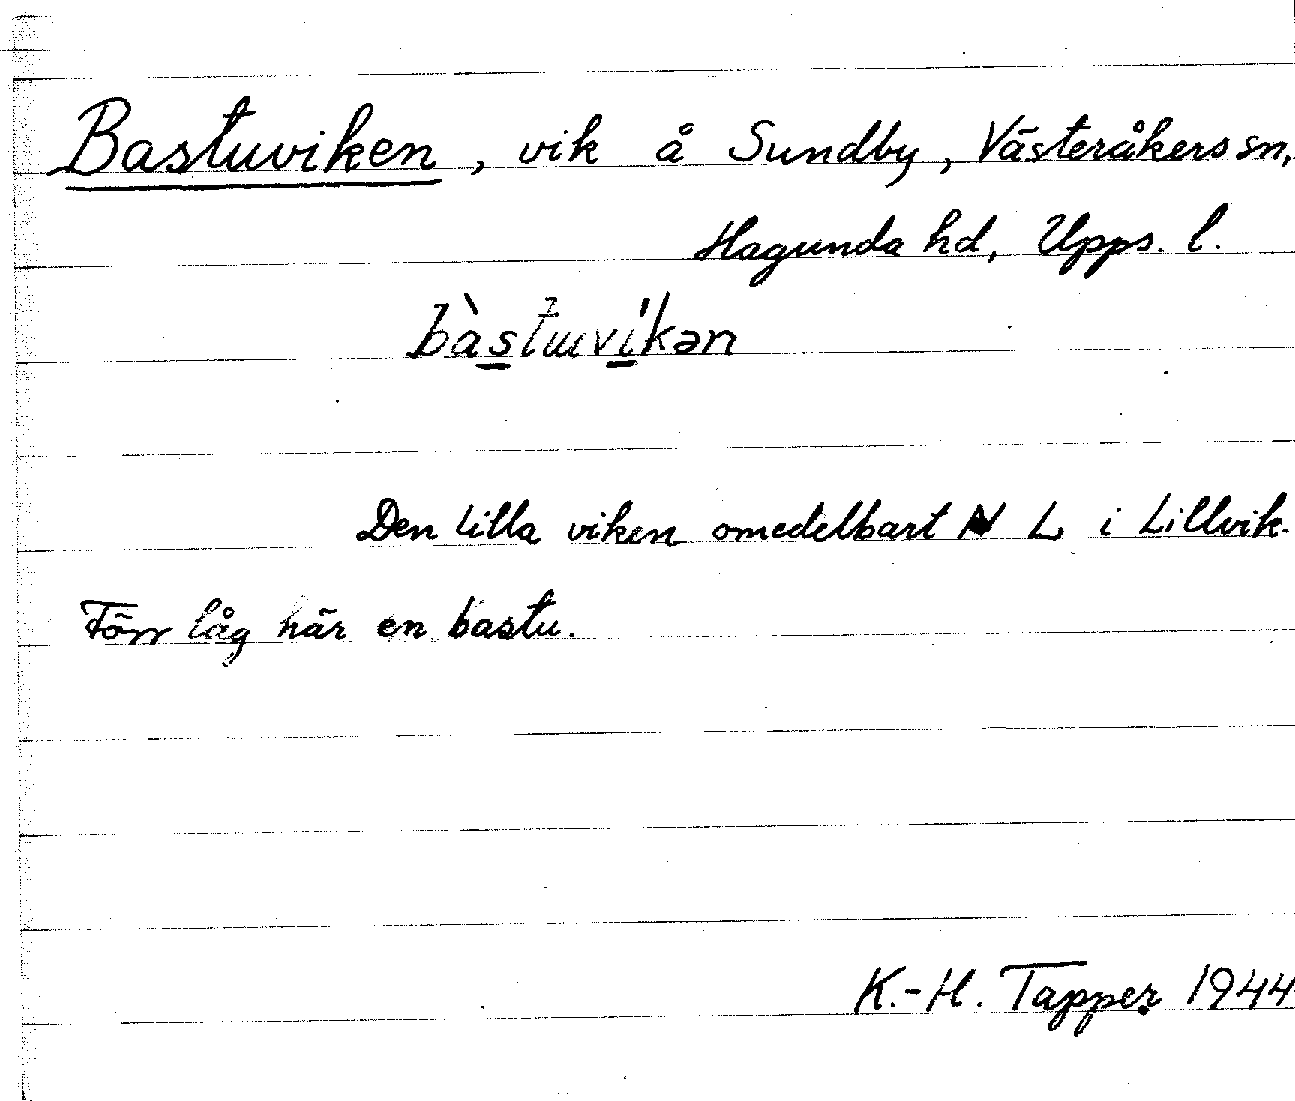 Bastuviken, vik å Sundby, Västeråkers sn,
Hagunda hd, Upps. l.
bàstɯvíkən
Den lilla viken omedelbart N L i Lillvik.
Förr låg här en bastu.
K.-H. Tapper 1944